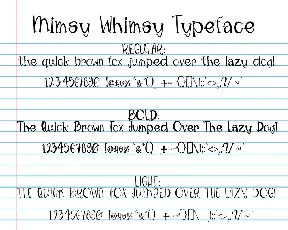 Mimsy Whimsy Typeface
REGULAR:
the quick brown fox jumped over the lazy dog!
1234567890
BOLD:
The Quick Brown Fox Jumped Over The Lazy Dog!
1234567890
LIGHT:
THE QUICK BROWN FOX JUMPED OVER THE LAZY DOG!
1234567890